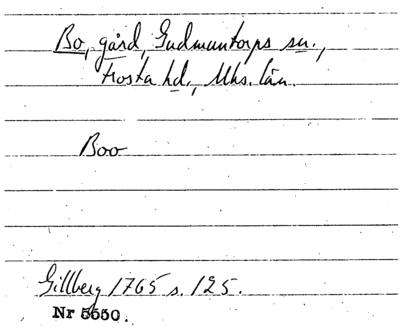 Bo, gård, Gudmuntorps sn.,
Frosta hd., Mhs. län.
Boo
Gillberg 1765 s. 125.
Nr 5650.